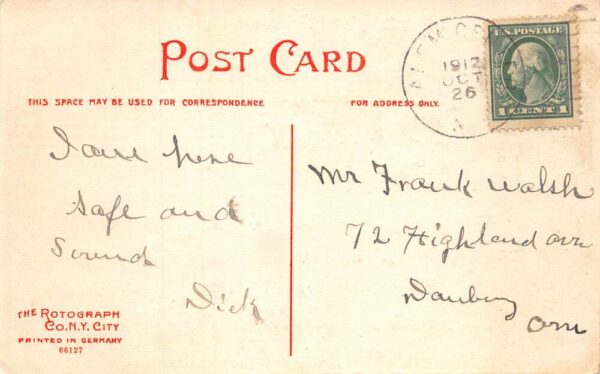 POST CARD
THIS SPACE MAY BE USED FOR CORRESPONDENCE
FOR ADDRESS ONLY.
1912
OCT
26
U.S. POSTAGE
1 CENT 1
I am here
safe and
Sound
Dick
Mr Frank Walsh
72 Highland ave
Danbury
Conn
THE ROTOGRAPH
CO. N.Y. CITY
PRINTED IN GERMANY
66127